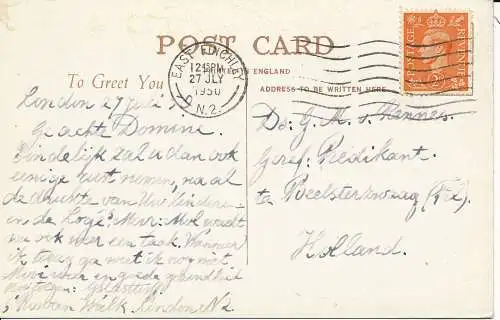 POST CARD
EAST FINCHLEY
12 15 PM
27 JLY
1950
N.2.
PRINTED IN ENGLAND
To Greet You
ADDRESS TO BE WRITTEN HERE
POSTAGE REVENUE
London 27 juli
Geachte Domine.
Eindelijk zal u dan ook
eenige rust nemen, na al
de drukte van Uw kinderen
en de Logé's. Mij wacht
nu ook weer een taak. Wanneer
ik terug ga weet ik nog niet
weer en goede gezondheid
London N2
Ds: G. M. v. Rennes
Geref. Predikant.
te Beetsterzwaag (Fr.)
Holland.